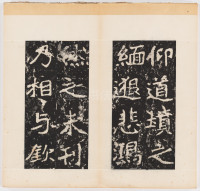 仰道墳之
緬邈悲鴻
之未刊
乃相与欽